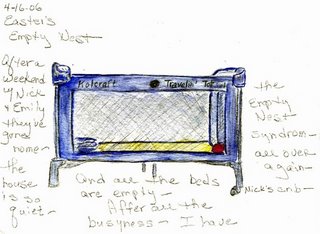 4-16-06
Easter's
Empty Nest
After a
weekend
w/ Nick
& Emily
they've
gone
home –
the
house
is so
quiet –
Kolcraft Travelin' Tot
And all the beds
are empty –
After all the
busyness – I have
the
Empty
Nest
Syndrom –
all over
again –
Nick's crib –